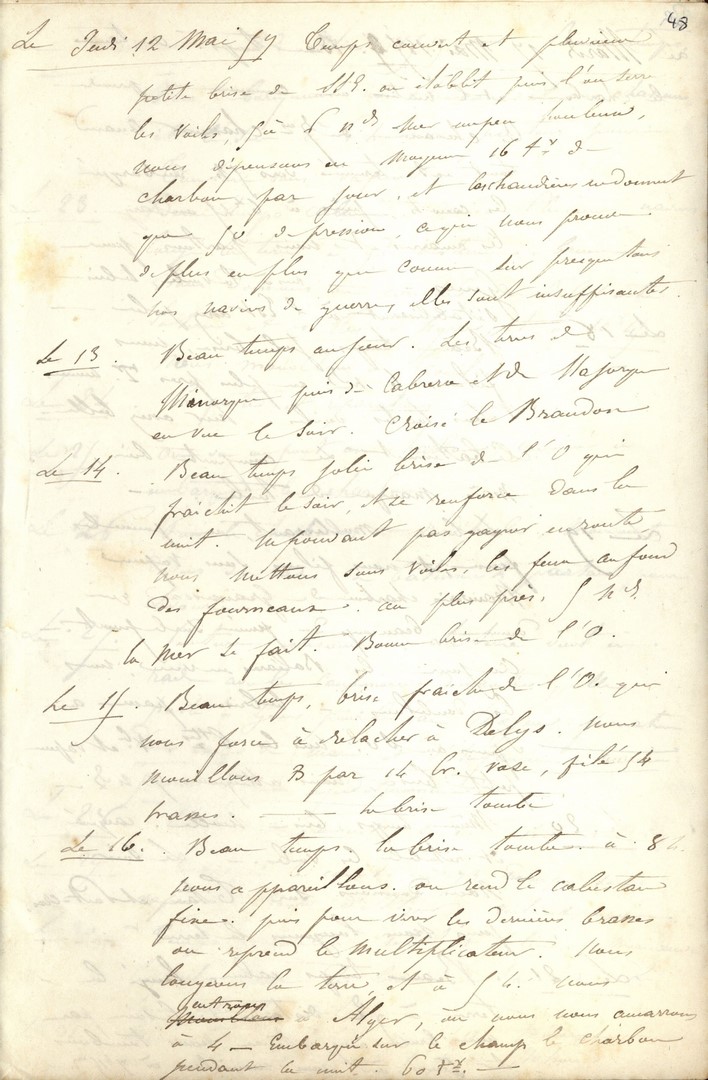 48
Le Jeudi 12 Mai 57 Temps couvert et pluvieux
petite brise de SSE. on établit puis l'on serre
les voiles, 5 à 6 nds Mer un peu houleuse,
nous dépensons en moyenne 16 tx de
charbon par jour, et les chaudières ne donnent
que 50 de pression, ce qui nous prouve
de plus en plus que comme sur presque tous
nos navires de guerre, elles sont insuffisantes.
Le 13. Beau temps au jour. Les terres de
Minorque puis de Cabrera et de Majorque
en vue le soir. Croisé le Brandon
Le 14. Beau temps jolie brise de l'O qui
fraichit le soir, et se renforce dans la
nuit. Ne pouvant pas gagner en route,
nous mettons sous voiles, les feux au fond
des fourneaux. au plus près, 5 nds.
la Mer se fait. Bonne brise de l'O.
Le 15. Beau temps, brise fraiche de l'O. qui
nous force à relacher à Delys. nous
mouillons B par 14 br. vase, filé 54
brasses. — la brise tombe
Le 16. Beau temps. la brise tombe. à 8 h.
nous appareillons. on rend le cabestan
fixe. puis pour virer les dernières brasses
on reprend le multiplicateur. Nous
longeons la terre, et à 5 h. nous
entrons à Alger, où nous nous amarrons
à 4 — Embarqué sur le champ le charbon
pendant la nuit. 60 tx. —